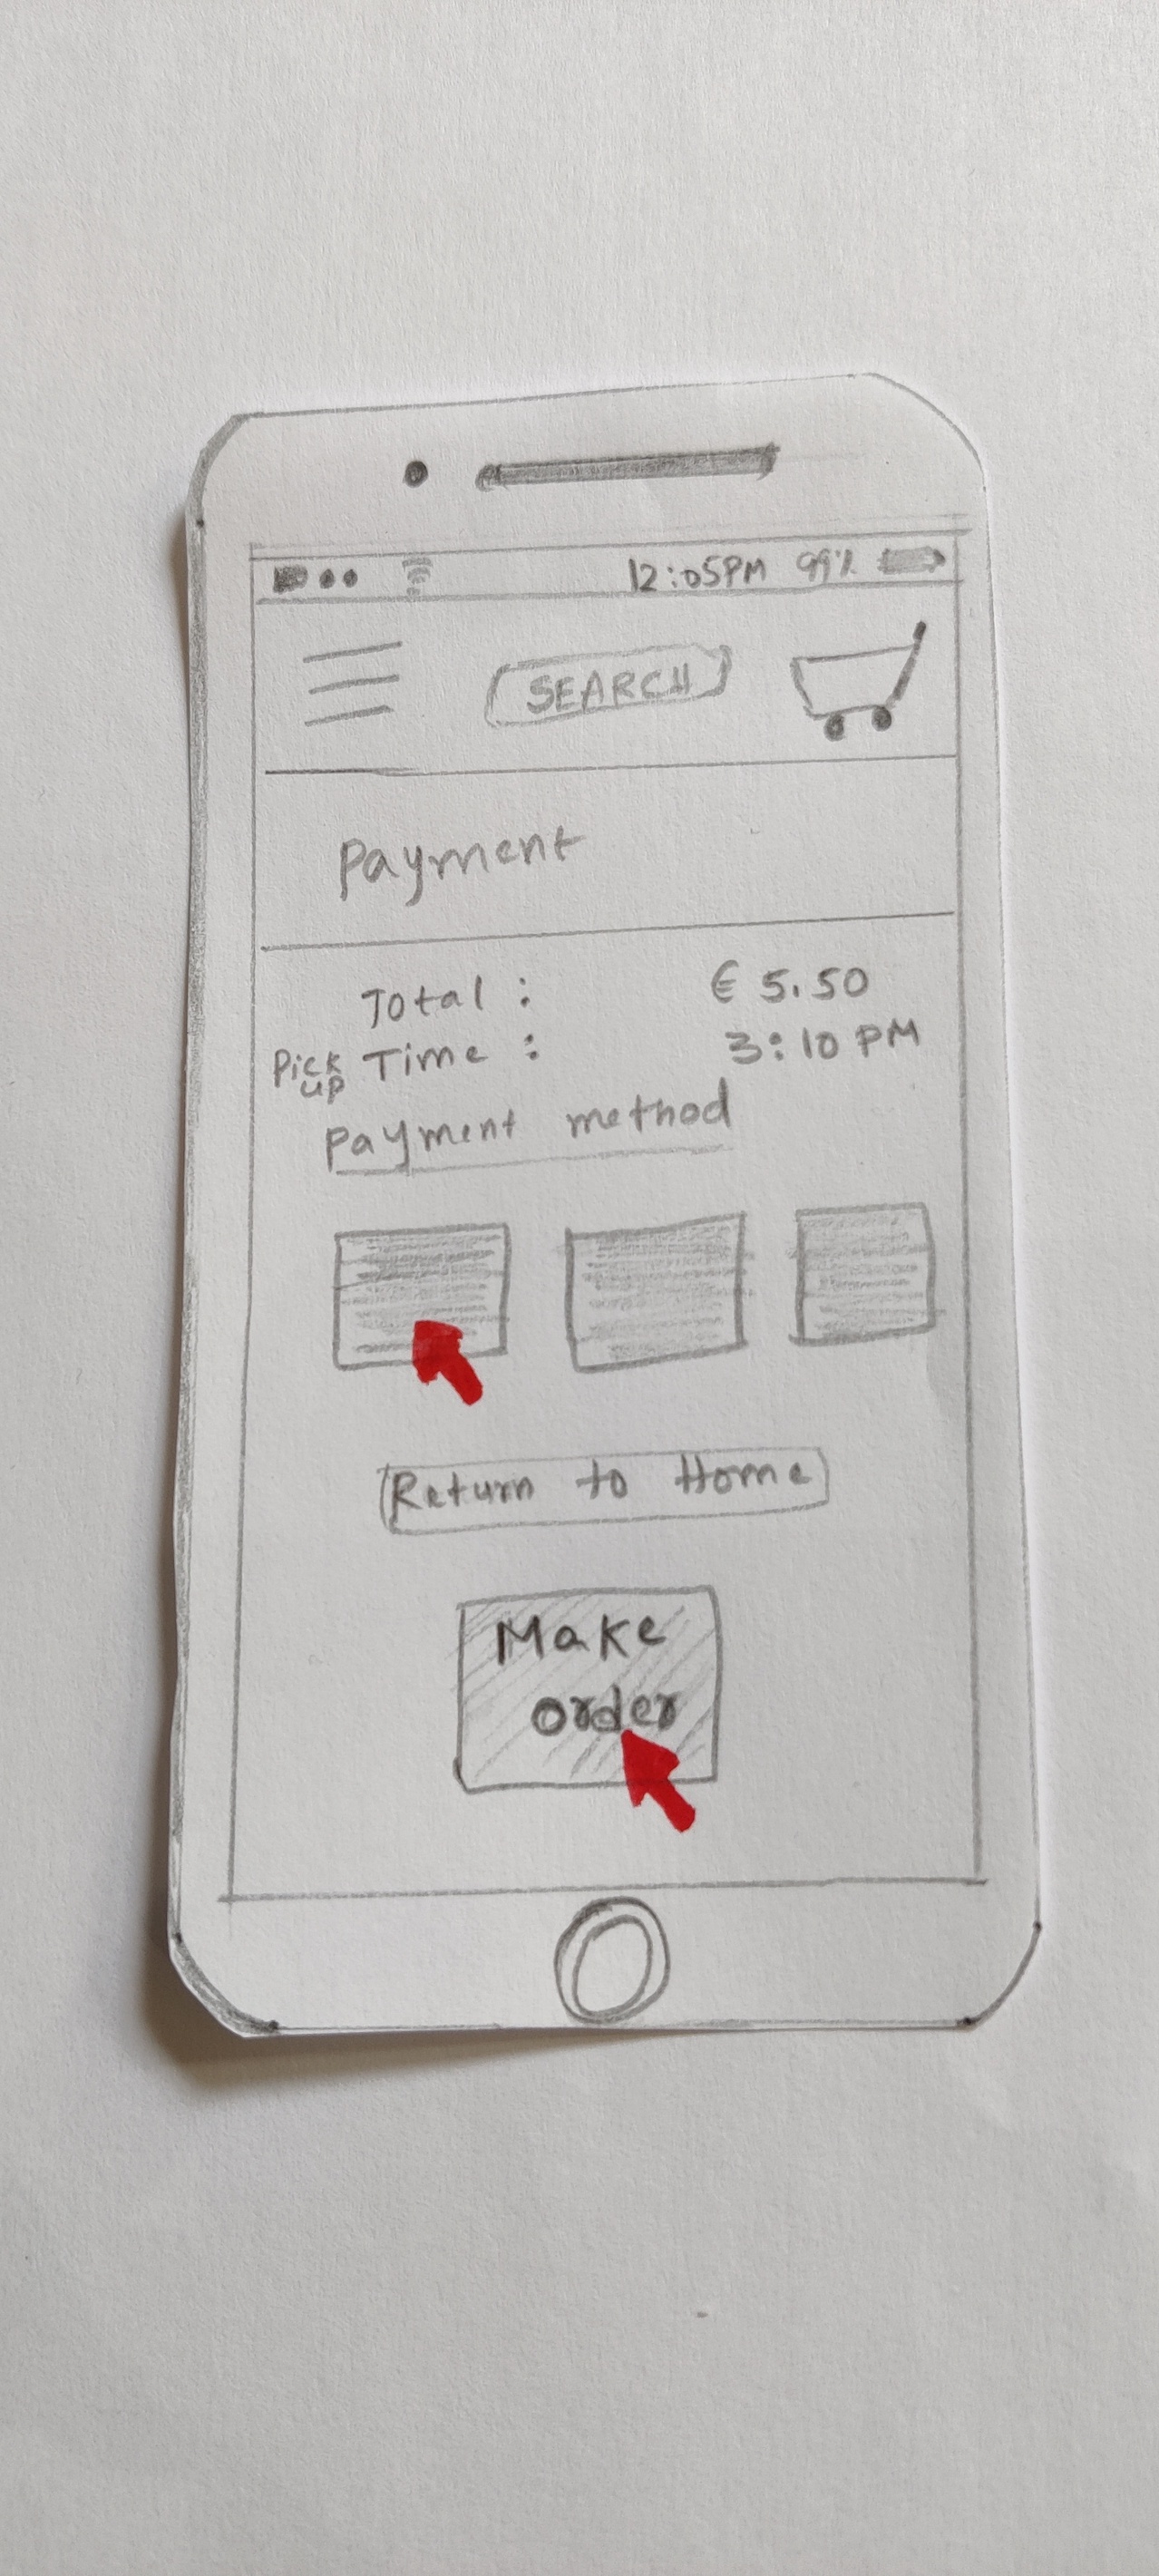 12:05PM 99%
SEARCH
Payment
Total : € 5.50
Pick up Time : 3:10 PM
Payment method
Return to Home
Make
order